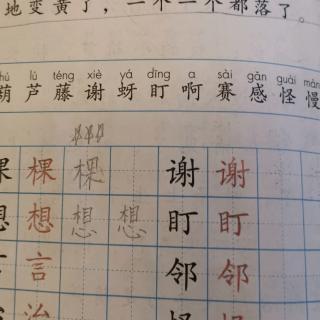 地变黄了，一个一个都落了。
hú lú téng xiè yá dīng a sài gǎn guài màn
葫芦藤谢蚜盯啊赛感怪慢
棵 棵 棵 谢 谢
想 想 想 想 盯 盯
言 言 邻 邻
治 怪 怪